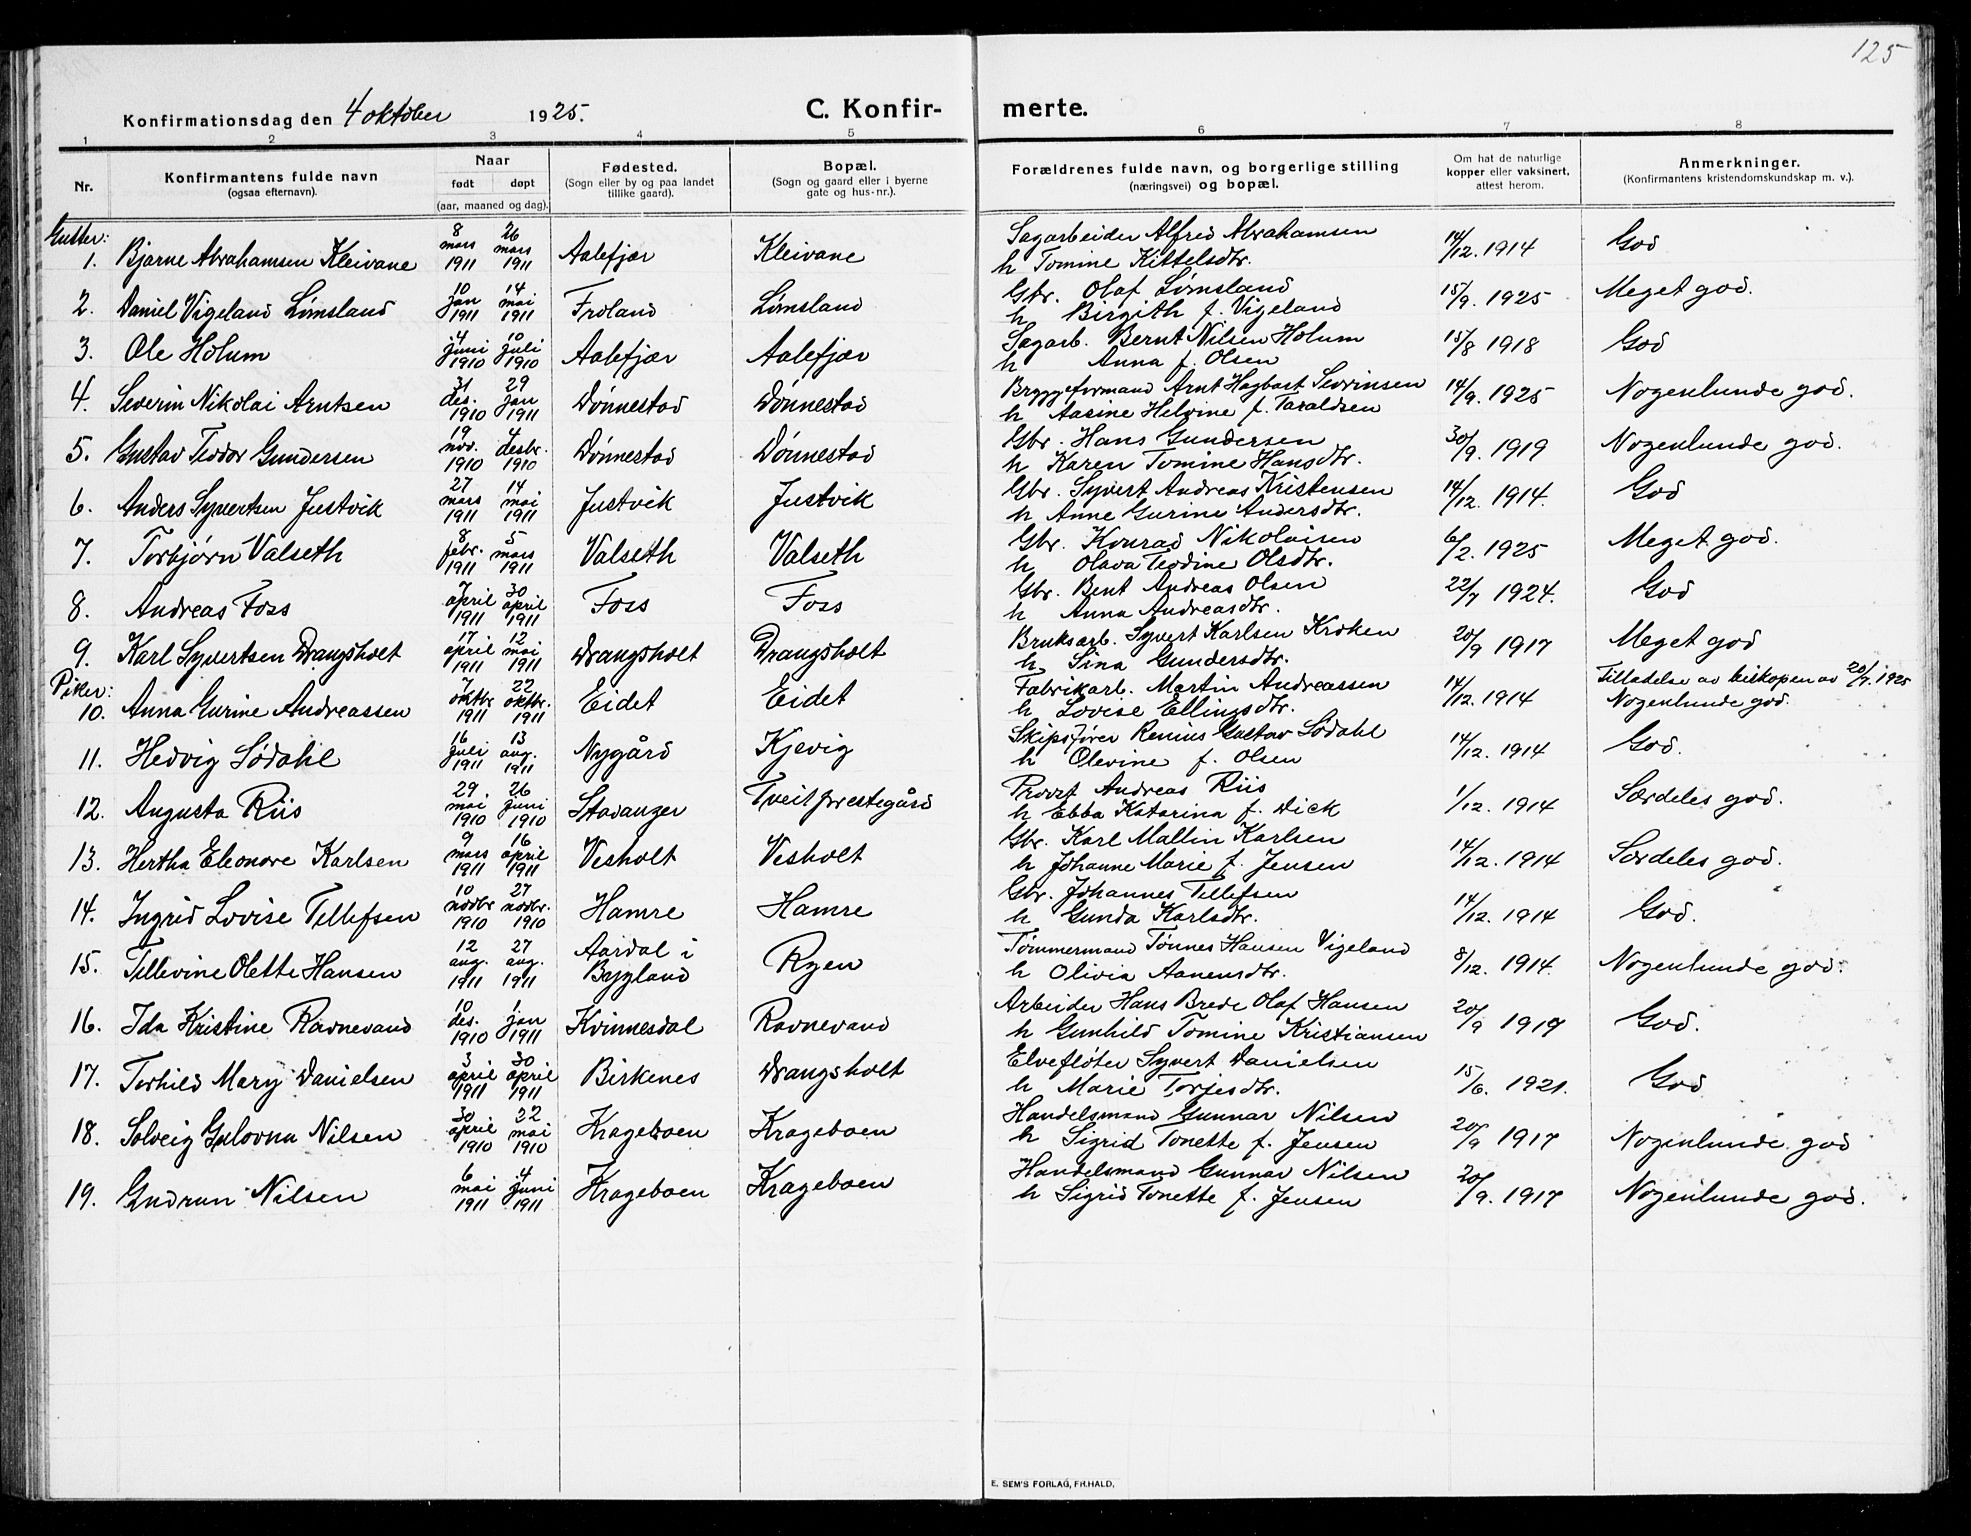 125
Konfirmationsdag den 4 oktober 1925. C. Konfir- merte.
1 2 3 4 5 6 7 8
Nr. Konfirmantens fulde navn (ogsaa efternavn). Naar født døpt (aar, maaned og dag). Fødested. (Sogn eller by og paa landet tillike gaard). Bopæl. (Sogn og gaard eller i byerne gate og hus-nr.). Forældrenes fulde navn, og borgerlige stilling (næringsvei) og bopæl. Om hat de naturlige kopper eller vaksinert, attest herom. Anmerkninger. (Konfirmantens kristendomskundskap m. v.).
Gutter:
1. Bjarne Abrahamsen Kleivane 8 mars 1911 26 mars 1911 Aalefjær Kleivane Sagarbeider Alfred Abrahamsen h Tomine Kittelsdtr. 14/12. 1914 God
2. Daniel Vigeland Lømsland 10 jan 1911 14 mai 1911 Froland Lømsland Gbr. Olaf Lømsland h Birgith f. Vigeland 15/9. 1925 Meget god.
3. Ole Holum 4 juni 1910 10 juli 1910 Aalefjær Aalefjær Sagarb. Bernt Nilsen Holum h Anna f. Olsen 15/8 1918 God
4. Severin Nikolai Arntsen 31 des. 1910 29 jan 1911 Dønnestad Dønnestad Bryggeformand Arnt Hagbart Sevrinsen h Aasine Helvine f. Taraldsen 14/9. 1925 Nogenlunde god.
5. Gustav Teodor Gundersen 19 nov. 1910 4 desbr. 1910 Dønnestad Dønnestad Gbr. Hans Gundersen h Karen Tomine Hansdtr. 30/9. 1919 Nogenlunde god.
6. Anders Syvertsen Justvik 27 mars 1911 14 mai 1911 Justvik Justvik Gbr. Syvert Andreas Kristensen h Anne Gurine Andersdtr. 14/12. 1914. God
7. Torbjørn Valseth 8 febr. 1911 5 mars 1911 Valseth Valseth Gbr. Konrad Nikolaisen h Olava Teodine Olsdtr. 6/2. 1925 Meget god.
8. Andreas Foss 7 april 1911 30 april 1911 Foss Foss Gbr. Bent Andreas Olsen h Anna Andreasdtr. 22/7 1924. God
9. Karl Syvertsen Drangsholt 17 april 1911 12 mai 1911 Drangsholt Drangsholt Bruksarb. Syvert Karlsen Kroken h Sina Gundersdtr. 20/9 1917 Meget god
Piker:
10. Anna Gurine Andreassen 7 oktbr 1911 22 oktbr. 1911 Eidet Eidet Fabrikarb. Martin Andreassen h Lovise Ellingsdtr. 14/12. 1914 Tilladelse av biskopen av 20/7. 1925 Nogenlunde god.
11. Hedvig Sødahl 16 juli 1911 13 aug. 1911 Nygård Kjevig Skipsfører Renius Gustav Sødahl h Olevine f. Olsen 14/12. 1914 God.
12. Augusta Riis 29. mai 1910 26 juni 1910 Stavanger Tveit prestegård Provst Andreas Riis h Ebba Katarina f. Dick 1/12. 1914 Særdeles god.
13. Hertha Eleonore Karlsen 9 mars 1911 16 april 1911 Vesholt Vesholt Gbr. Karl Mallin Karlsen h Johanne Marie f. Jensen 14/12. 1914 Særdeles god.
14. Ingrid Lovise Tellefsen 10 novbr 1910 27 novbr. 1910 Hamre Hamre Gbr. Johannes Tellefsen h Gunda Karlsdtr. 14/12. 1914 God.
15. Tellevine Olette Hansen 12 aug. 1911 27 aug. 1911 Aardal i Bygland Ryen Tømmermand Tønnes Hansen Vigeland h Olivia Aanensdtr. 8/12. 1914. Nogenlunde god.
16. Ida Kristine Ravnevand 10 des. 1910 1 jan 1911 Kvinnesdal Ravnevand Arbeider Hans Brede Olaf Hansen h Gunhild Tomine Kristiansen 20/9 1919 God.
17. Torhild Mary Danielsen 3 april 1911 30 april 1911 Birkenes Drangsholt Elvefløter Syvert Danielsen h Marie Torjesdtr. 15/6. 1921. God
18. Solveig Gulovna Nilsen 30 april 1910 22 mai 1910 Krageboen Krageboen Handelsmand Gunnar Nilsen h Sigrid Tonette f. Jensen 20/9 1917 Nogenlunde god
19. Gudrun Nilsen 6 mai 1911 4 juni 1911 Krageboen Krageboen Handelsmand Gunnar Nilsen h Sigrid Tonette f. Jensen 20/9. 1917 Nogenlunde god.
E. SEM'S FORLAG, FR.HALD.